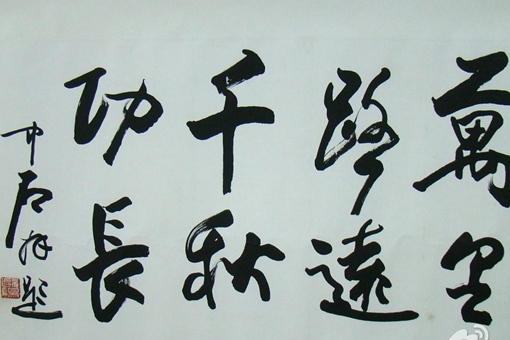 萬里
路遠
千秋
功長
中石 題